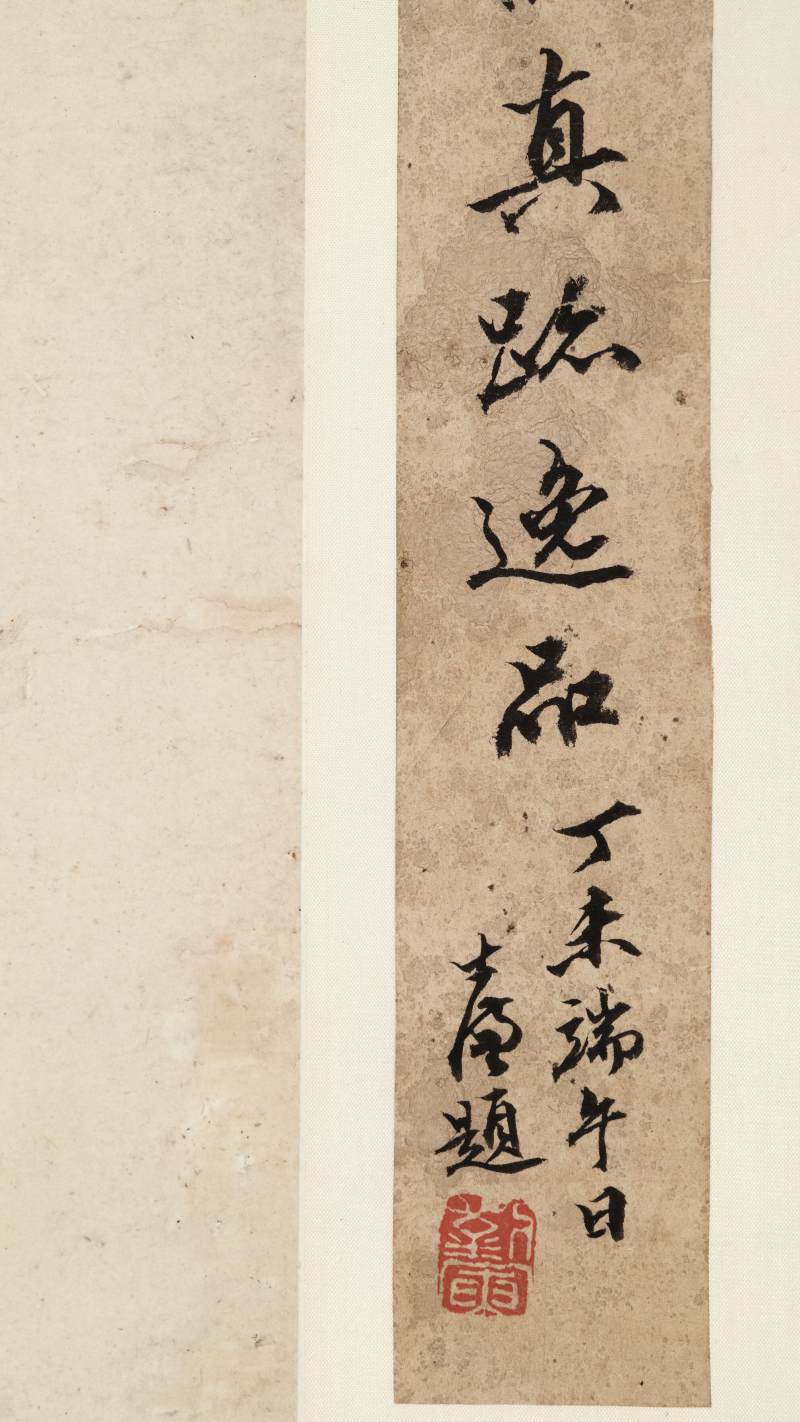 真跡逸品
丁未端午日
題